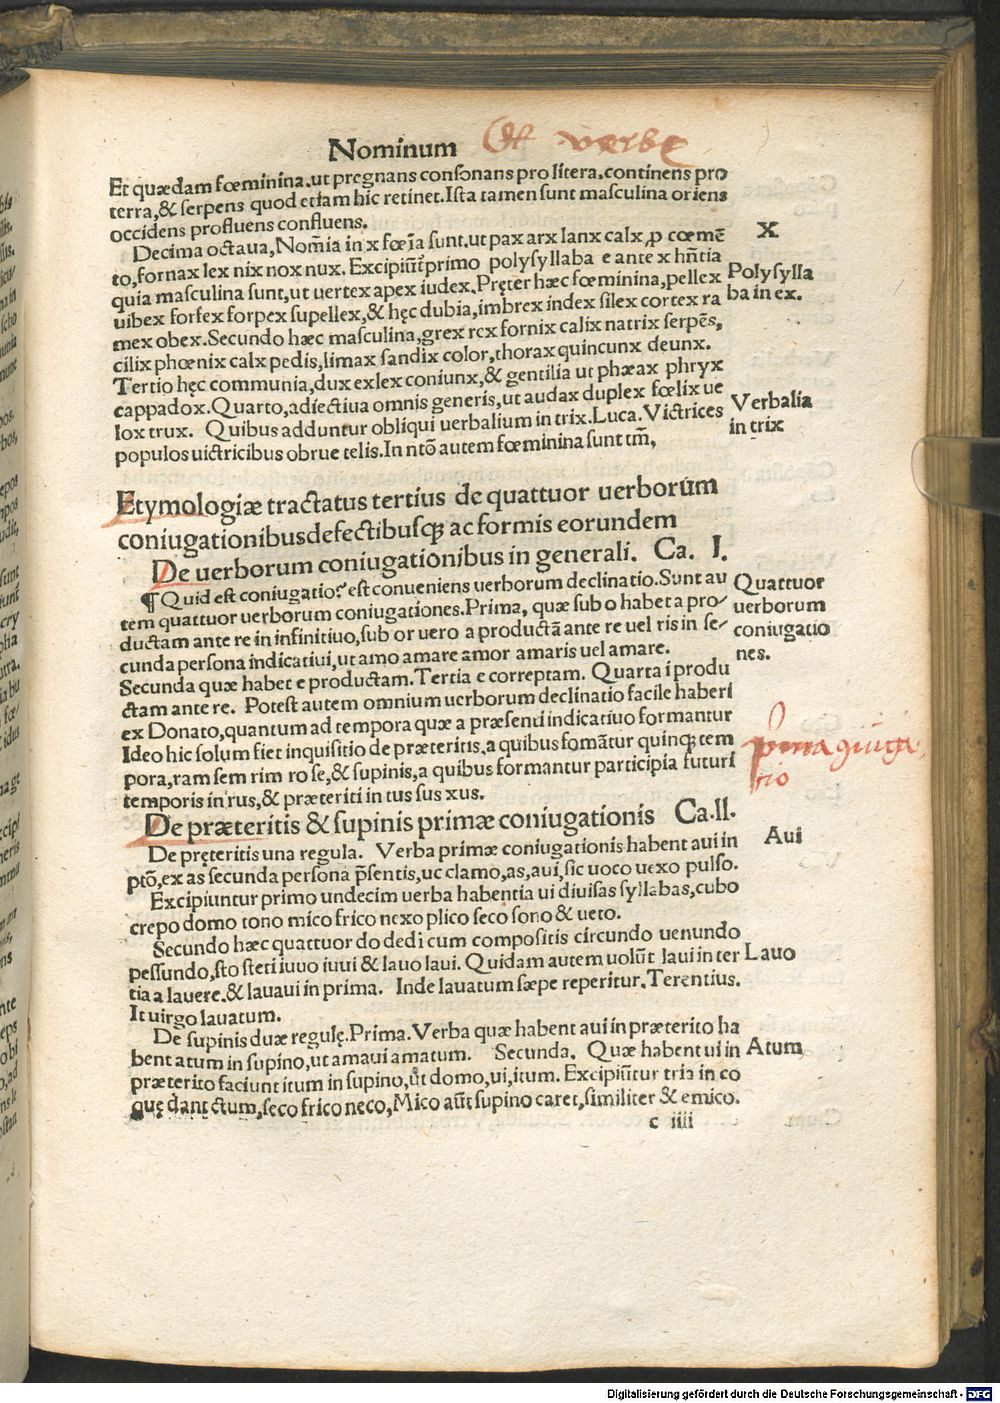 Nominum Et verbe
Et quædam fœminina.ut pregnans consonans pro litera.continens pro
terra,& serpens quod etiam hic retinet.Ista tamen sunt masculina oriens
occidens profluens confluens.
Decima octaua,Nom̄ia in x fœīa sunt.ut pax arx lanx calx,ꝑ cœmē
to,fornax lex nix nox nux. Excipiūt̄ primo polysyllaba e ante x hn̄tia
quia masculina sunt,ut uertex apex iudex.Pręter hæc fœminina,pellex
uibex forfex forpex supellex,& hęc dubia,imbrex index silex cortex ra
mex obex.Secundo hæc masculina,grex rex fornix calix natrix serpēs,
cilix phœnix calx pedis,limax sandix color,thorax quincunx deunx.
Tertio hęc communia,dux exlex coniunx,& gentilia ut phæax phryx
cappadox.Quarto,adiectiua omnis generis,ut audax duplex fœlix ue
lox trux. Quibus adduntur obliqui uerbalium in trix.Luca.Victrices
populos uictricibus obrue telis.In ntō autem fœminina sunt tm̄,
X
Polysylla
ba in ex.
Verbalia
in trix
Etymologiæ tractatus tertius de quattuor uerborum
coniugationibusdefectibusqꝫ ac formis eorundem
De uerborum coniugationibus in generali. Ca. I.
¶ Quid est coniugatio? est conueniens uerborum declinatio.Sunt au
tem quattuor uerborum coniugationes.Prima, quæ sub o habet a pro/
ductam ante re in infinitiuo,sub or uero a productā ante re uel ris in se/
cunda persona indicatiui,ut amo amare amor amaris uel amare.
Secunda quæ habet e productam.Tertia e correptam. Quarta i produ
ctam ante re. Potest autem omnium uerborum declinatio facile haberi
ex Donato,quantum ad tempora quæ a præsenti indicatiuo formantur
Ideo hic solum fiet inquisitio de præteritis.a quibus fomātur quinqꝫ tem
pora,ram sem rim ro se,& supinis,a quibus formantur participia futuri
temporis in rus,& præteriti in tus sus xus.
Quattuor
uerborum
coniugatio
nes.
De præteritis & supinis primæ coniugationis Ca.II.
De pręteritis una regula. Verba primæ coniugationis habent aui in
ptō,ex as secunda persona p̄sentis,uc clamo,as,aui,sic uoco uexo pulso.
Excipiuntur primo undecim uerba habentia ui diuisas syllabas,cubo
crepo domo tono mico frico nexo plico seco sono & ueto.
Secundo hæc quattuor do dedi cum compositis circundo uenundo
pessundo,sto steti iuuo iuui & lauo laui. Quidam autem uolūt laui in ter
tia a lauere.& lauaui in prima. Inde lauatum sæpe reperitur.Terentius.
It uirgo lauatum.
De supinis duæ regulę.Prima.Verba quæ habent aui in præterito ha
bent atum in supino,ut amaui amatum. Secunda. Quæ habent ui in
præterito faciunt itum in supino,ūt domo,ui,itum. Excipiūtur tria in co
quę dant ctum,seco frico neco,Mico aūt supino caret,similiter & emico.
prima 9iuga
tio
Aui
Lauo
Atum
c iiii
Digitalisierung gefördert durch die Deutsche Forschungsgemeinschaft - DFG